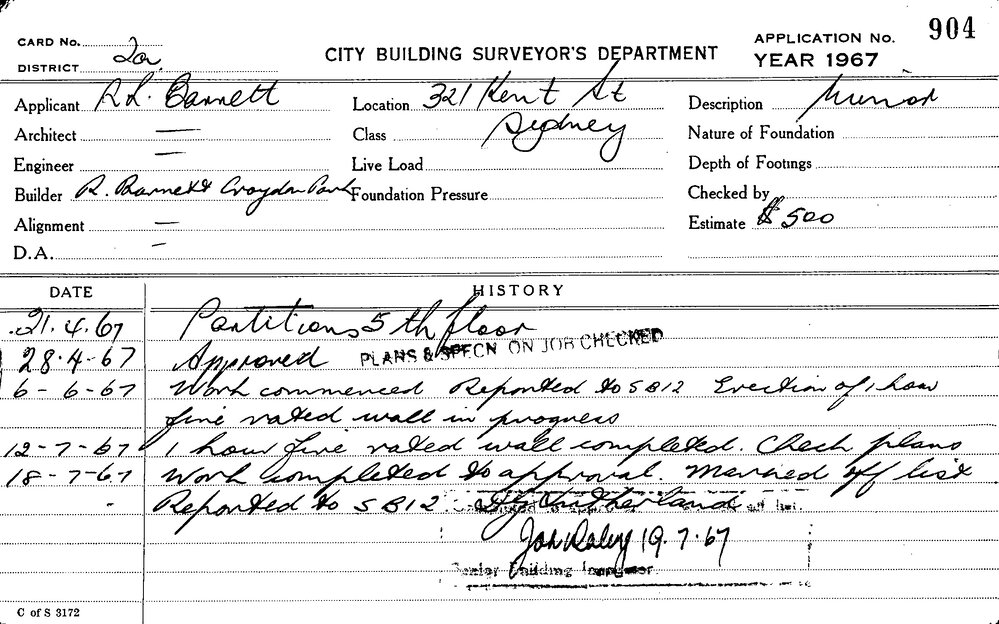 904
CARD No.
DISTRICT 2a
CITY BUILDING SURVEYOR'S DEPARTMENT
APPLICATION No.
YEAR 1967
Applicant R. L. Barnett
Location 321 Kent St
Description Minor
Architect —
Class Sydney
Nature of Foundation
Engineer —
Live Load
Depth of Footings
Builder R. Barnett Croydon Park
Foundation Pressure
Checked by
Alignment —
Estimate $ 500
D.A. —
DATE HISTORY
21.4.67 Partitions 5th floor
28.4-67 Approved PLANS & SPECN ON JOB CHECKED
6-6-67 Work commenced Reported to SB12 Erection of 1 hour
fire rated wall in progress
12-7-67 1 hour fire rated wall completed. Check plans
18-7-67 Work completed to approval. Marked off list
Reported to SB12 off list.
19.7.67
Senior Building Inspector
C of S 3172